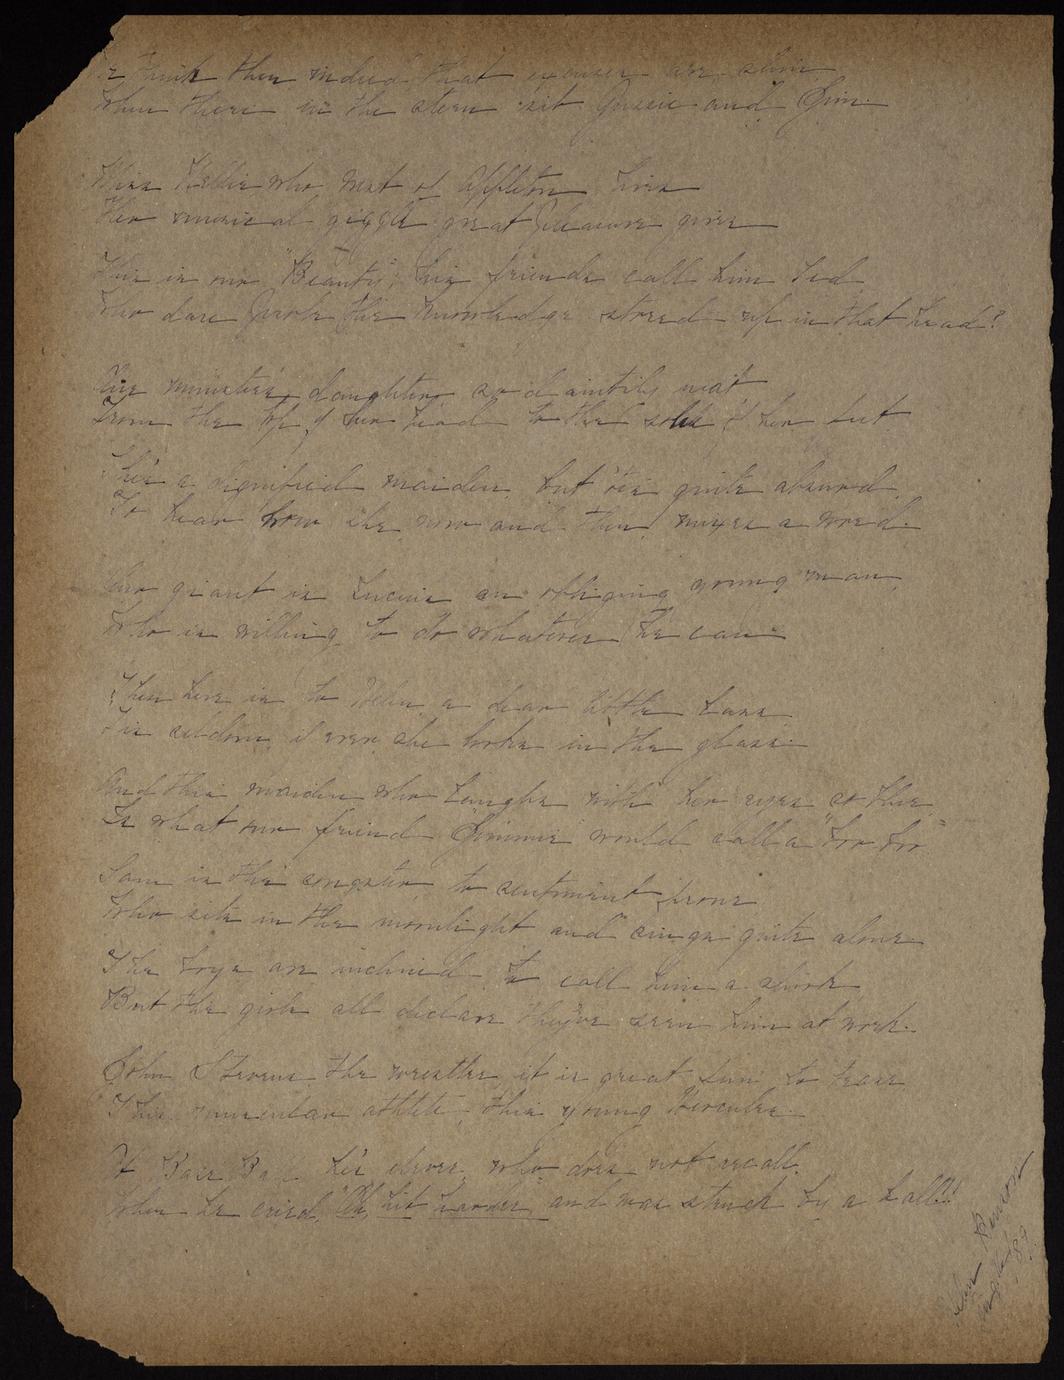 think then indeed that excuses are slim
When there in the stern sit Gussie and Jim.
Miss Nellie who next at Appleton lives
Her musical giggle great pleasure gives
This is our "Beauty", his friends call him Ted
Who dare probe the knowledge stored up in that head?
The minister's daughter so daintily neat
From the tip of her head to the soles of her feet
She's a dignified maiden, but 'tis quite absurd
To hear how she now and then mixes a word.
Our giant is Lucius an obliging young man,
Who is willing to do whatever he can
Then here is to Helen a dear little lass
'Tis seldom if ever she looks in the glass.
And this maiden who laughs with her eyes so blue
Is what our friend Jimmie would call a
Sam is the songster to sentiment prone
Who sits in the moonlight and sings quite alone
The boys are inclined to call him a shirk
But the girls all declare they've seen him at work.
John Stevens the wrestler, it is great fun to tease
This muscular athlete, this young Hercules.
At Base Ball he's clever, who does not recall,
When he cried, "Oh, hit harder, and was struck by a ball!!